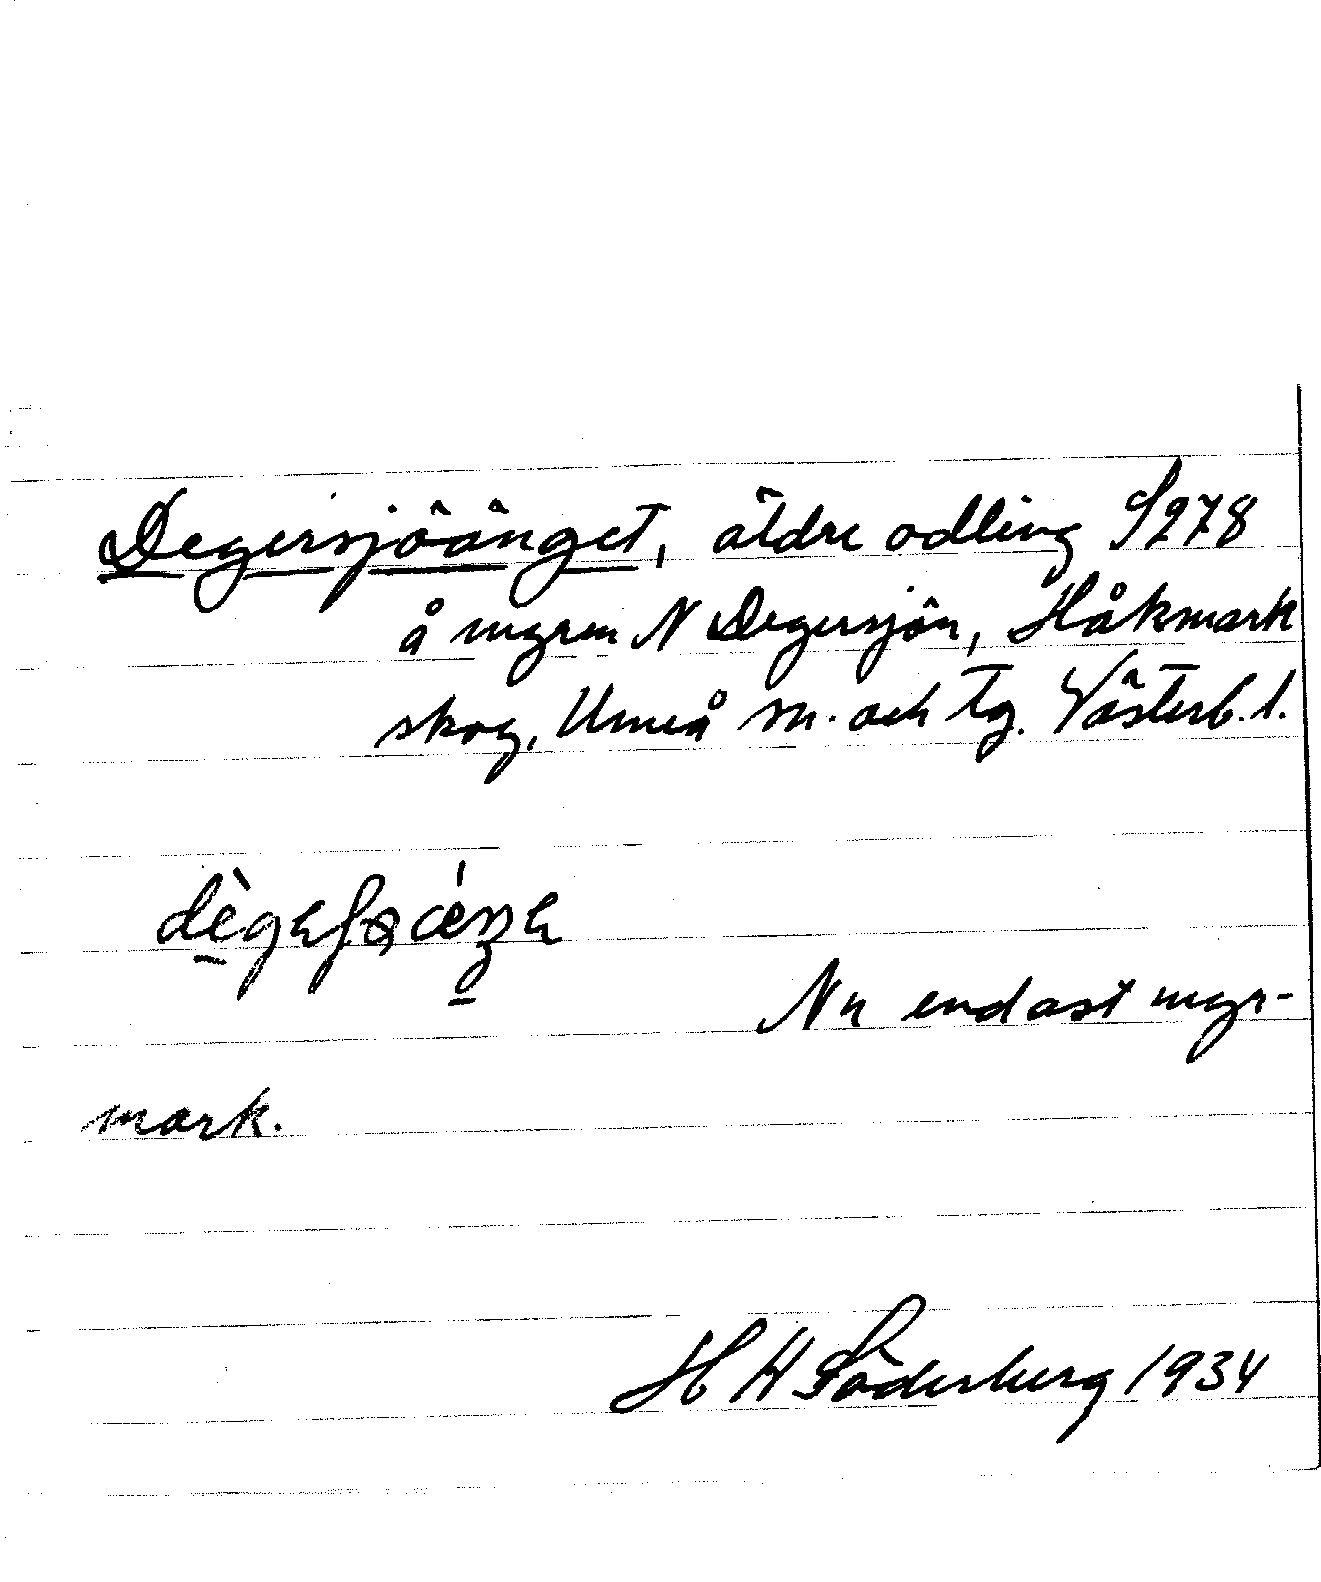 Degersjöänget, äldre odling S278
å myren N Degersjön, Håkmark
skog, Umeå sn. och tg. Västerb. l.
Nu endast myr-
mark.
H W Söderberg 1934